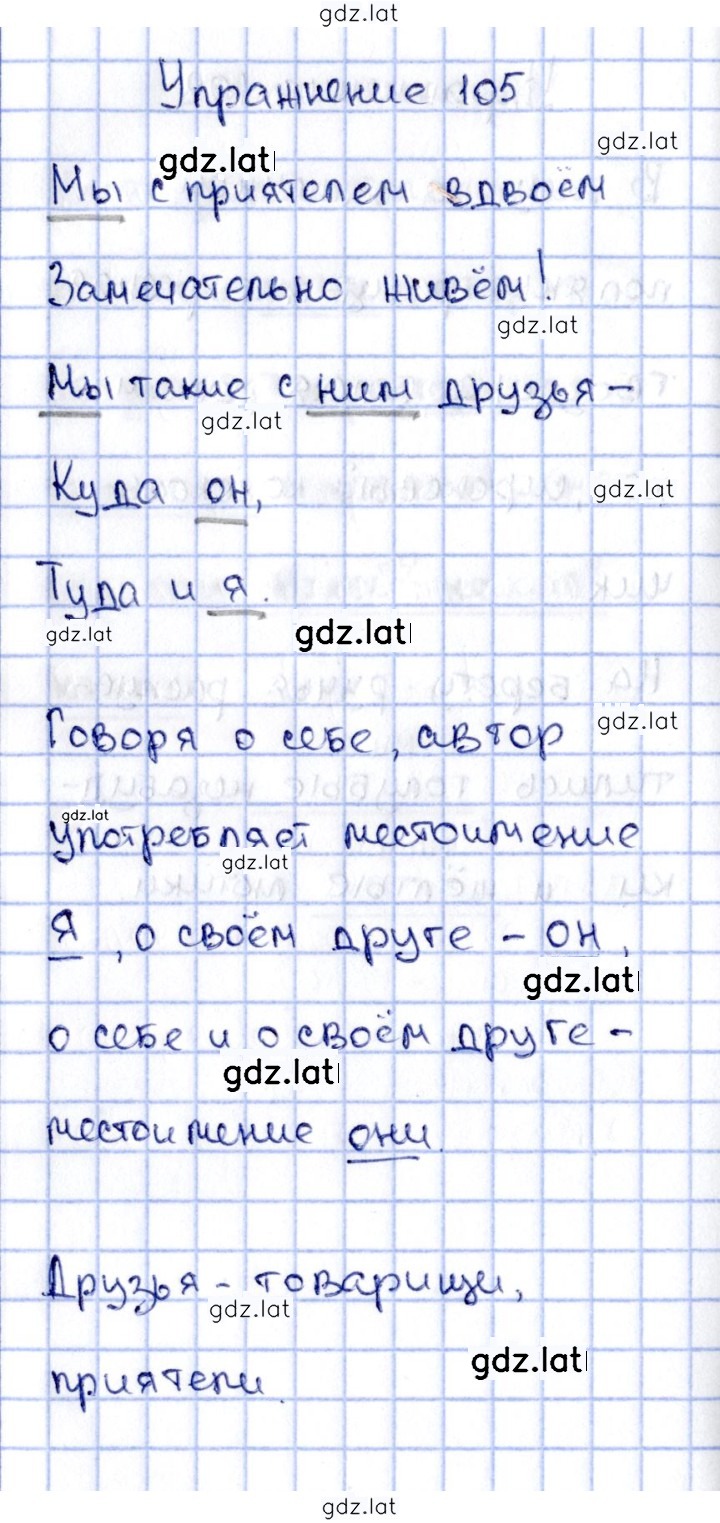 gdz.lat
Упражнение 105
gdz.lat
gdz.lat
Мы с приятелем вдвоём
Замечательно живём!
gdz.lat
Мы такие с ним друзья –
gdz.lat
Куда он,
gdz.lat
Туда и я.
gdz.lat
gdz.lat
Говоря о себе, автор
gdz.lat
gdz.lat
употребляет местоимение
gdz.lat
Я, о своём друге – он,
gdz.lat
о себе и о своём друге –
gdz.lat
местоимение они.
Друзья – товарищи,
gdz.lat
gdz.lat
приятели.
gdz.lat